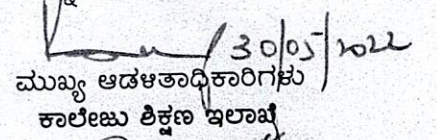 30/05/2022
ಮುಖ್ಯ ಆಡಳಿತಾಧಿಕಾರಿಗಳು
ಕಾಲೇಜು ಶಿಕ್ಷಣ ಇಲಾಖೆ